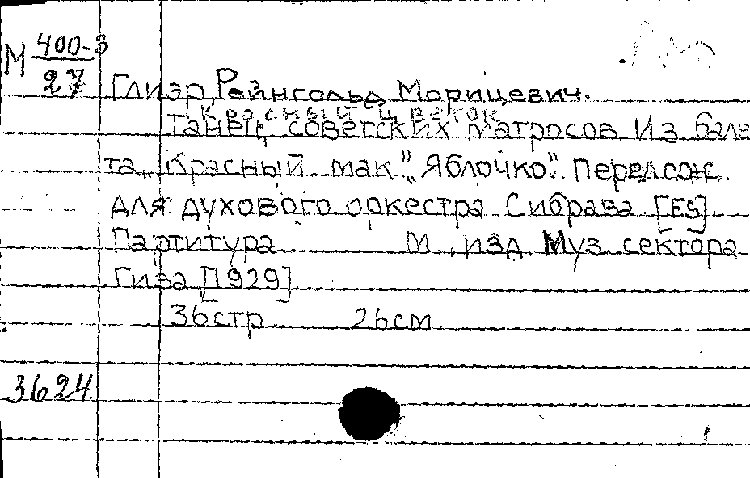 М 400-3
27
Глиэр Рейнгольд Морицевич.
Красный цветок
Танец советских матросов Из бале
та „Красный мак". „Яблочко". Перелож.
для духового оркестра Сибрава [Es].
Партитура М., изд. Муз. сектора
Гиза [1929]
36 стр 26 см
3624